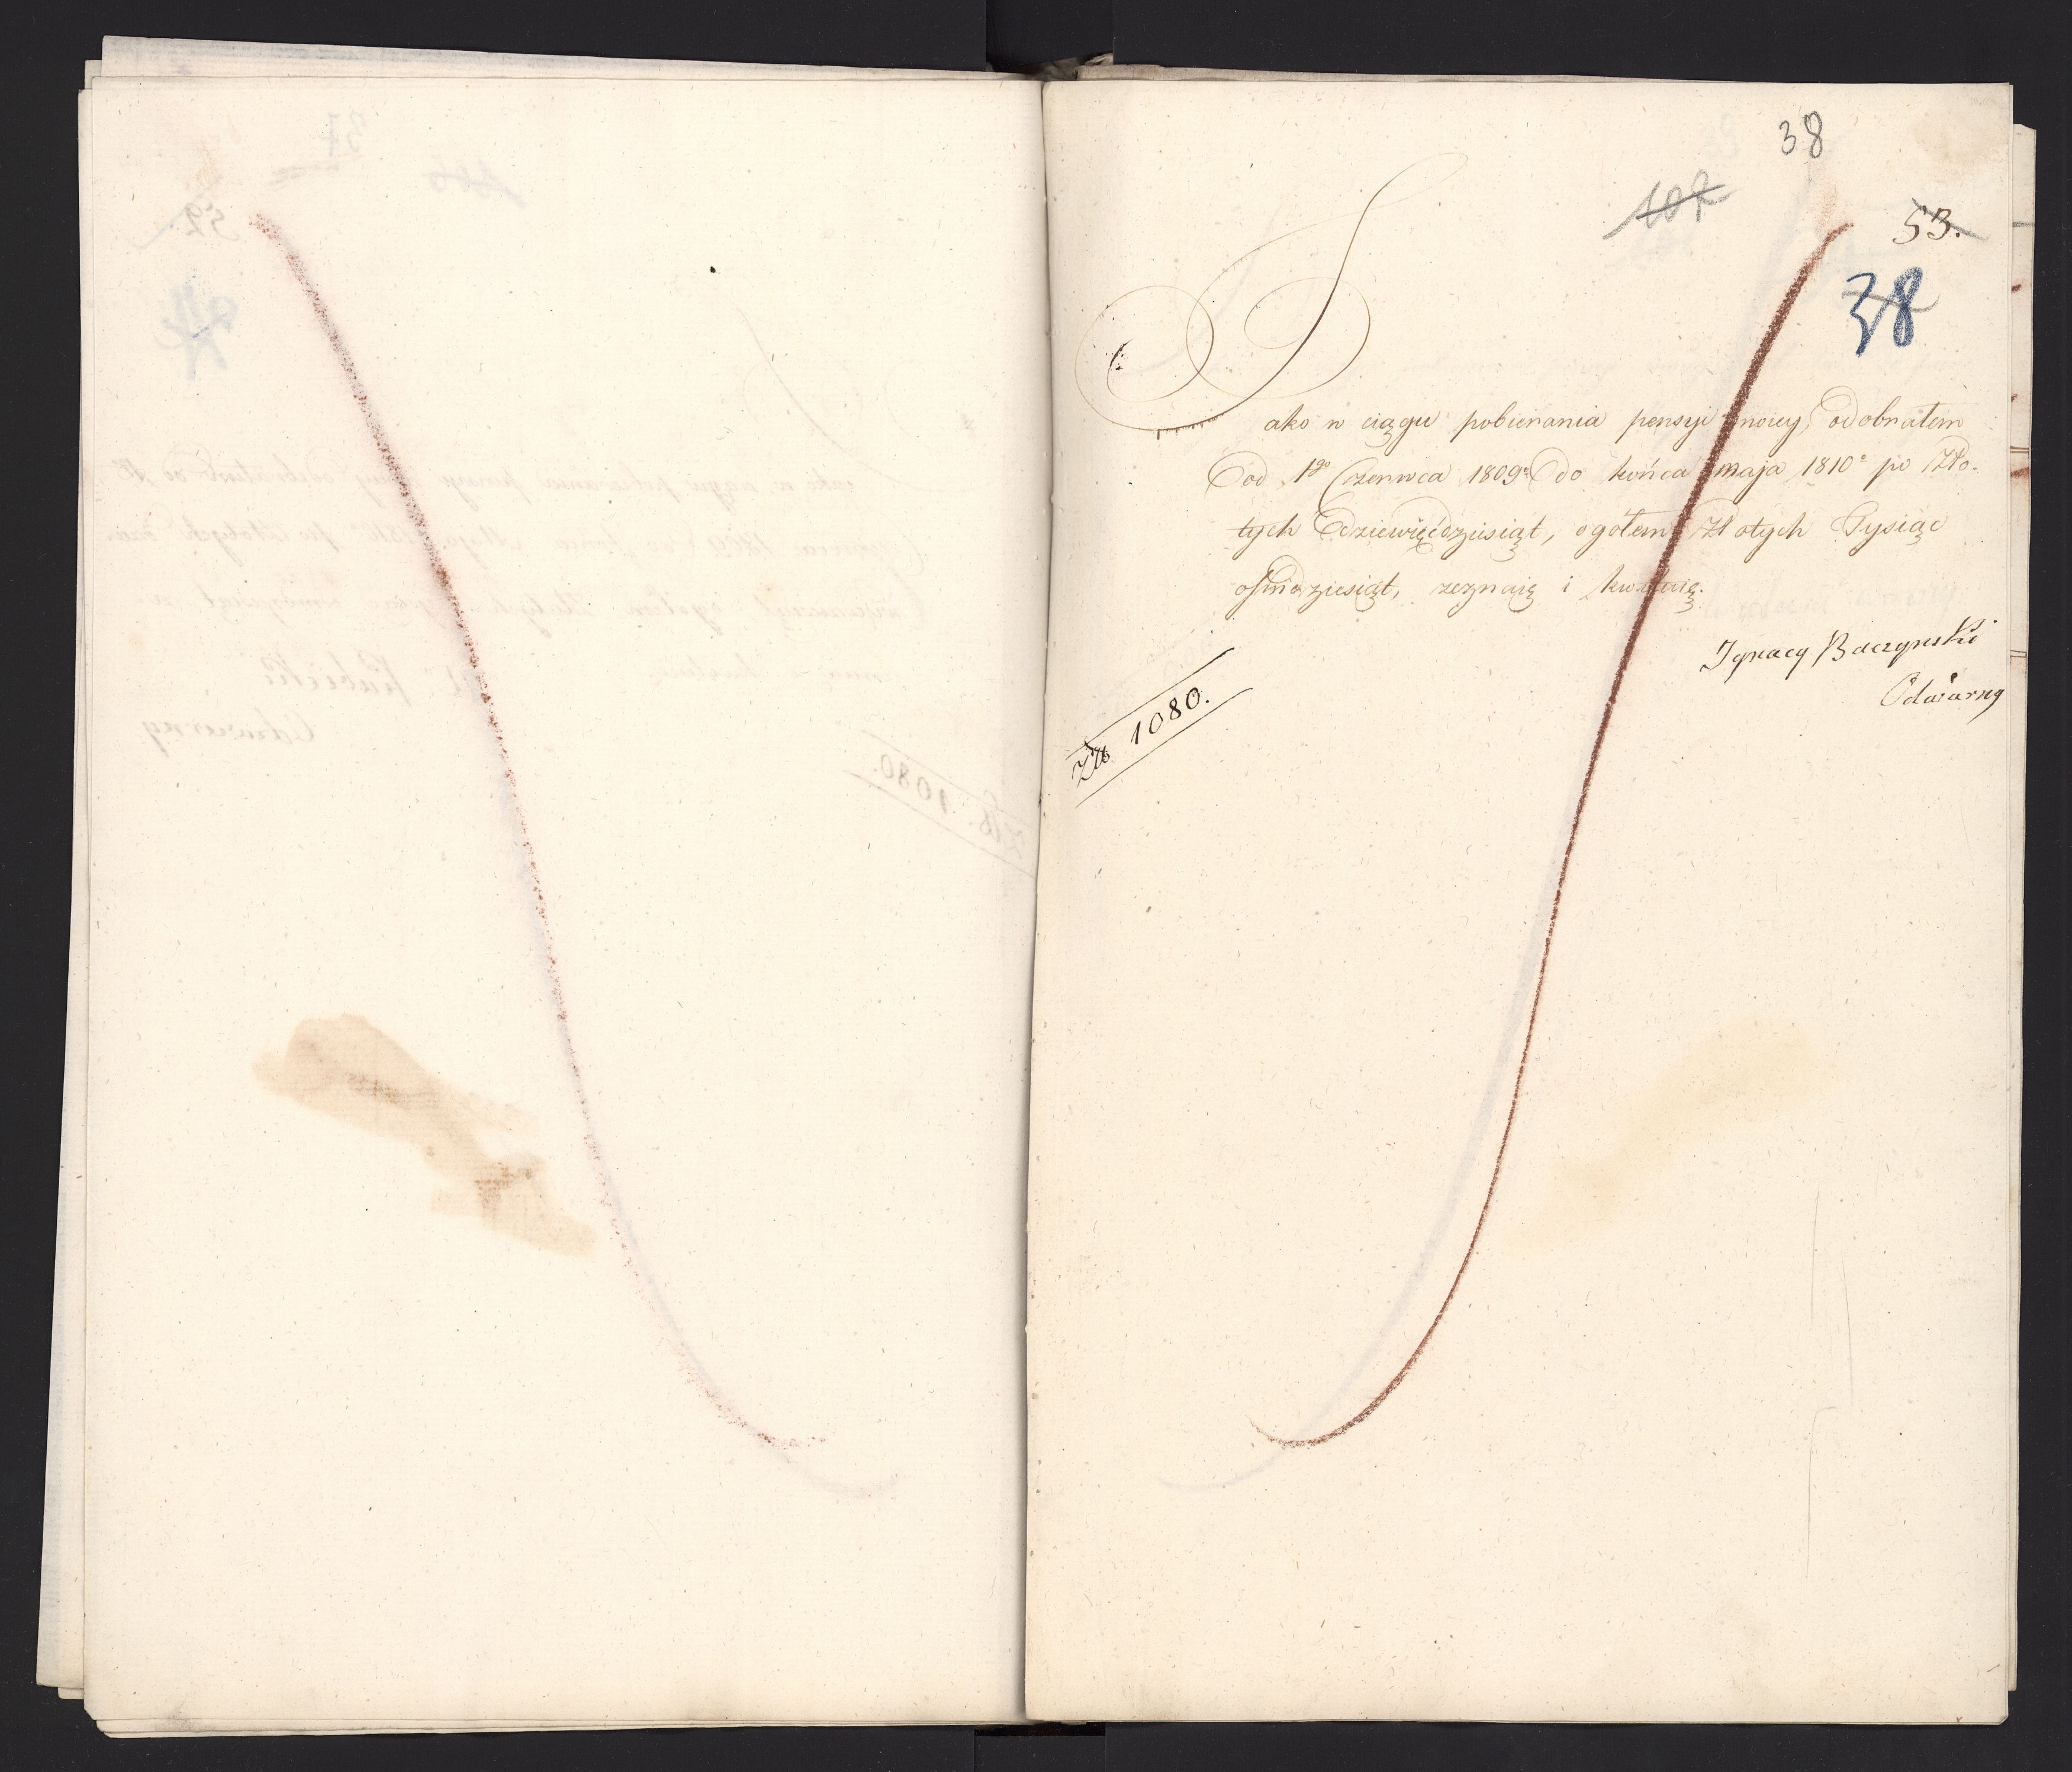 38
107
53.
38
Jako w ciągu pobierania pensyi moiey, odobrałem
od 1go Czerwca 1809o do końca maja 1810o po Zło-
tych dziewięćdziesiąt, ogółem Złotych Tysiąc
ośmdziesiąt, zeznaię i kwituię.
Ignacy Baczynski
Odwierny
Złt 1080.